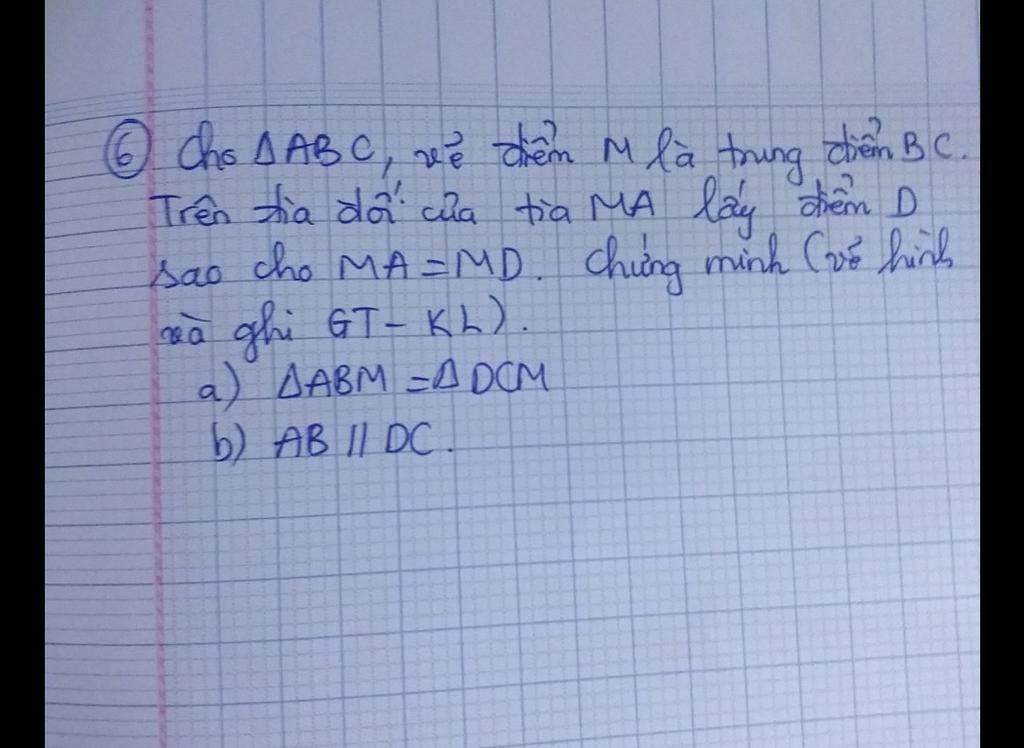 ⑥ Cho ΔABC, vẽ điểm M là trung điểm BC.
Trên tia đối của tia MA lấy điểm D
sao cho MA = MD. Chứng minh (vẽ hình
và ghi GT - KL).
a) ΔABM = Δ DCM
b) AB // DC.